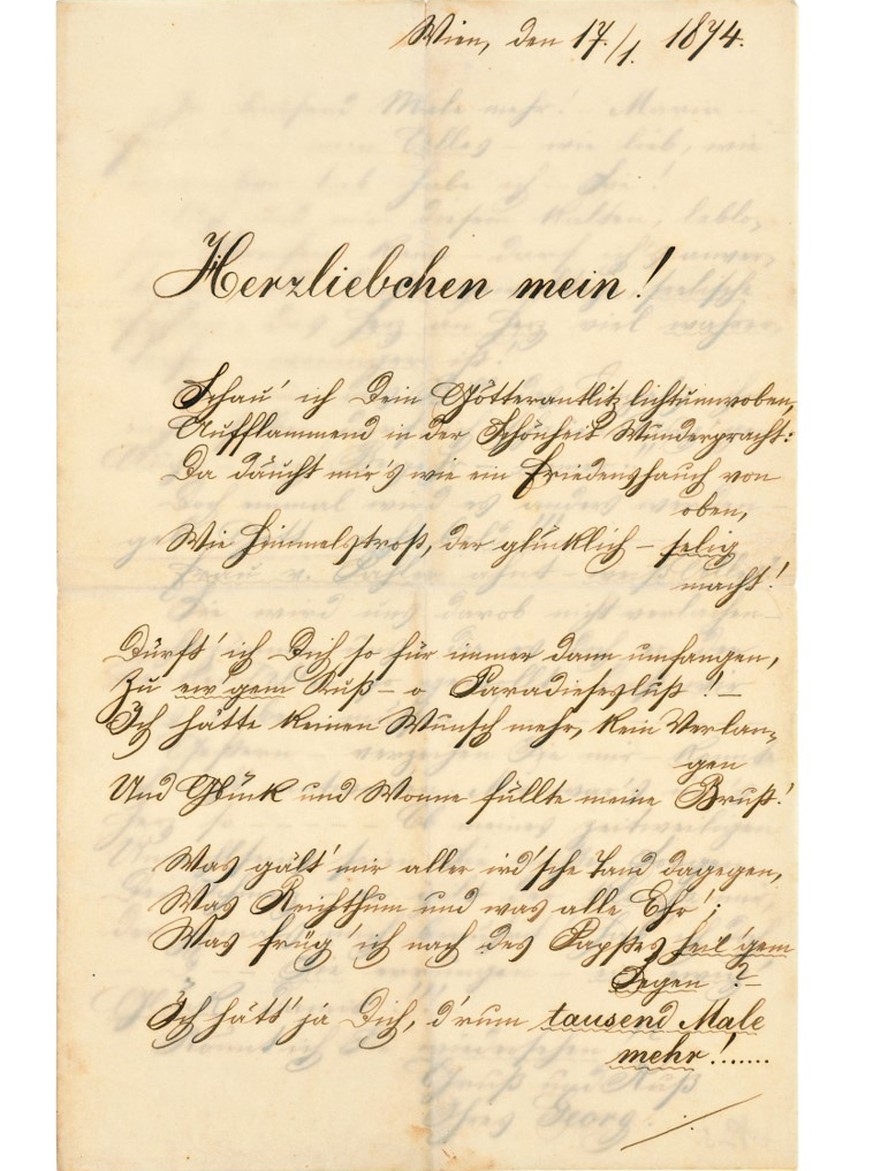 Wien, den 17./1. 1874.
Herzliebchen mein!
Schau' ich Dein Götterantlitz lichtumwoben,
Aufflammend in der Schönheit Wunderpracht:
Da däucht mir's wie ein Friedenshauch von
oben,
Wie Himmelstrost, der glücklich – selig
macht!
Dürft' ich Dich so für immer dann umfangen,
Zu ew'gem Kuß – o Paradieseslust! –
Ich hätte keinen Wunsch mehr, kein Verlan-
gen
Und Glück und Wonne füllte meine Brust!
Was gält' mir aller ird'sche Tand dagegen,
Was Reichthum und was alle Ehr';
Was früg' ich nach des Papstes heil'gem
Segen? –
Ich hätt' ja Dich, d'rum tausend Male
mehr!.......